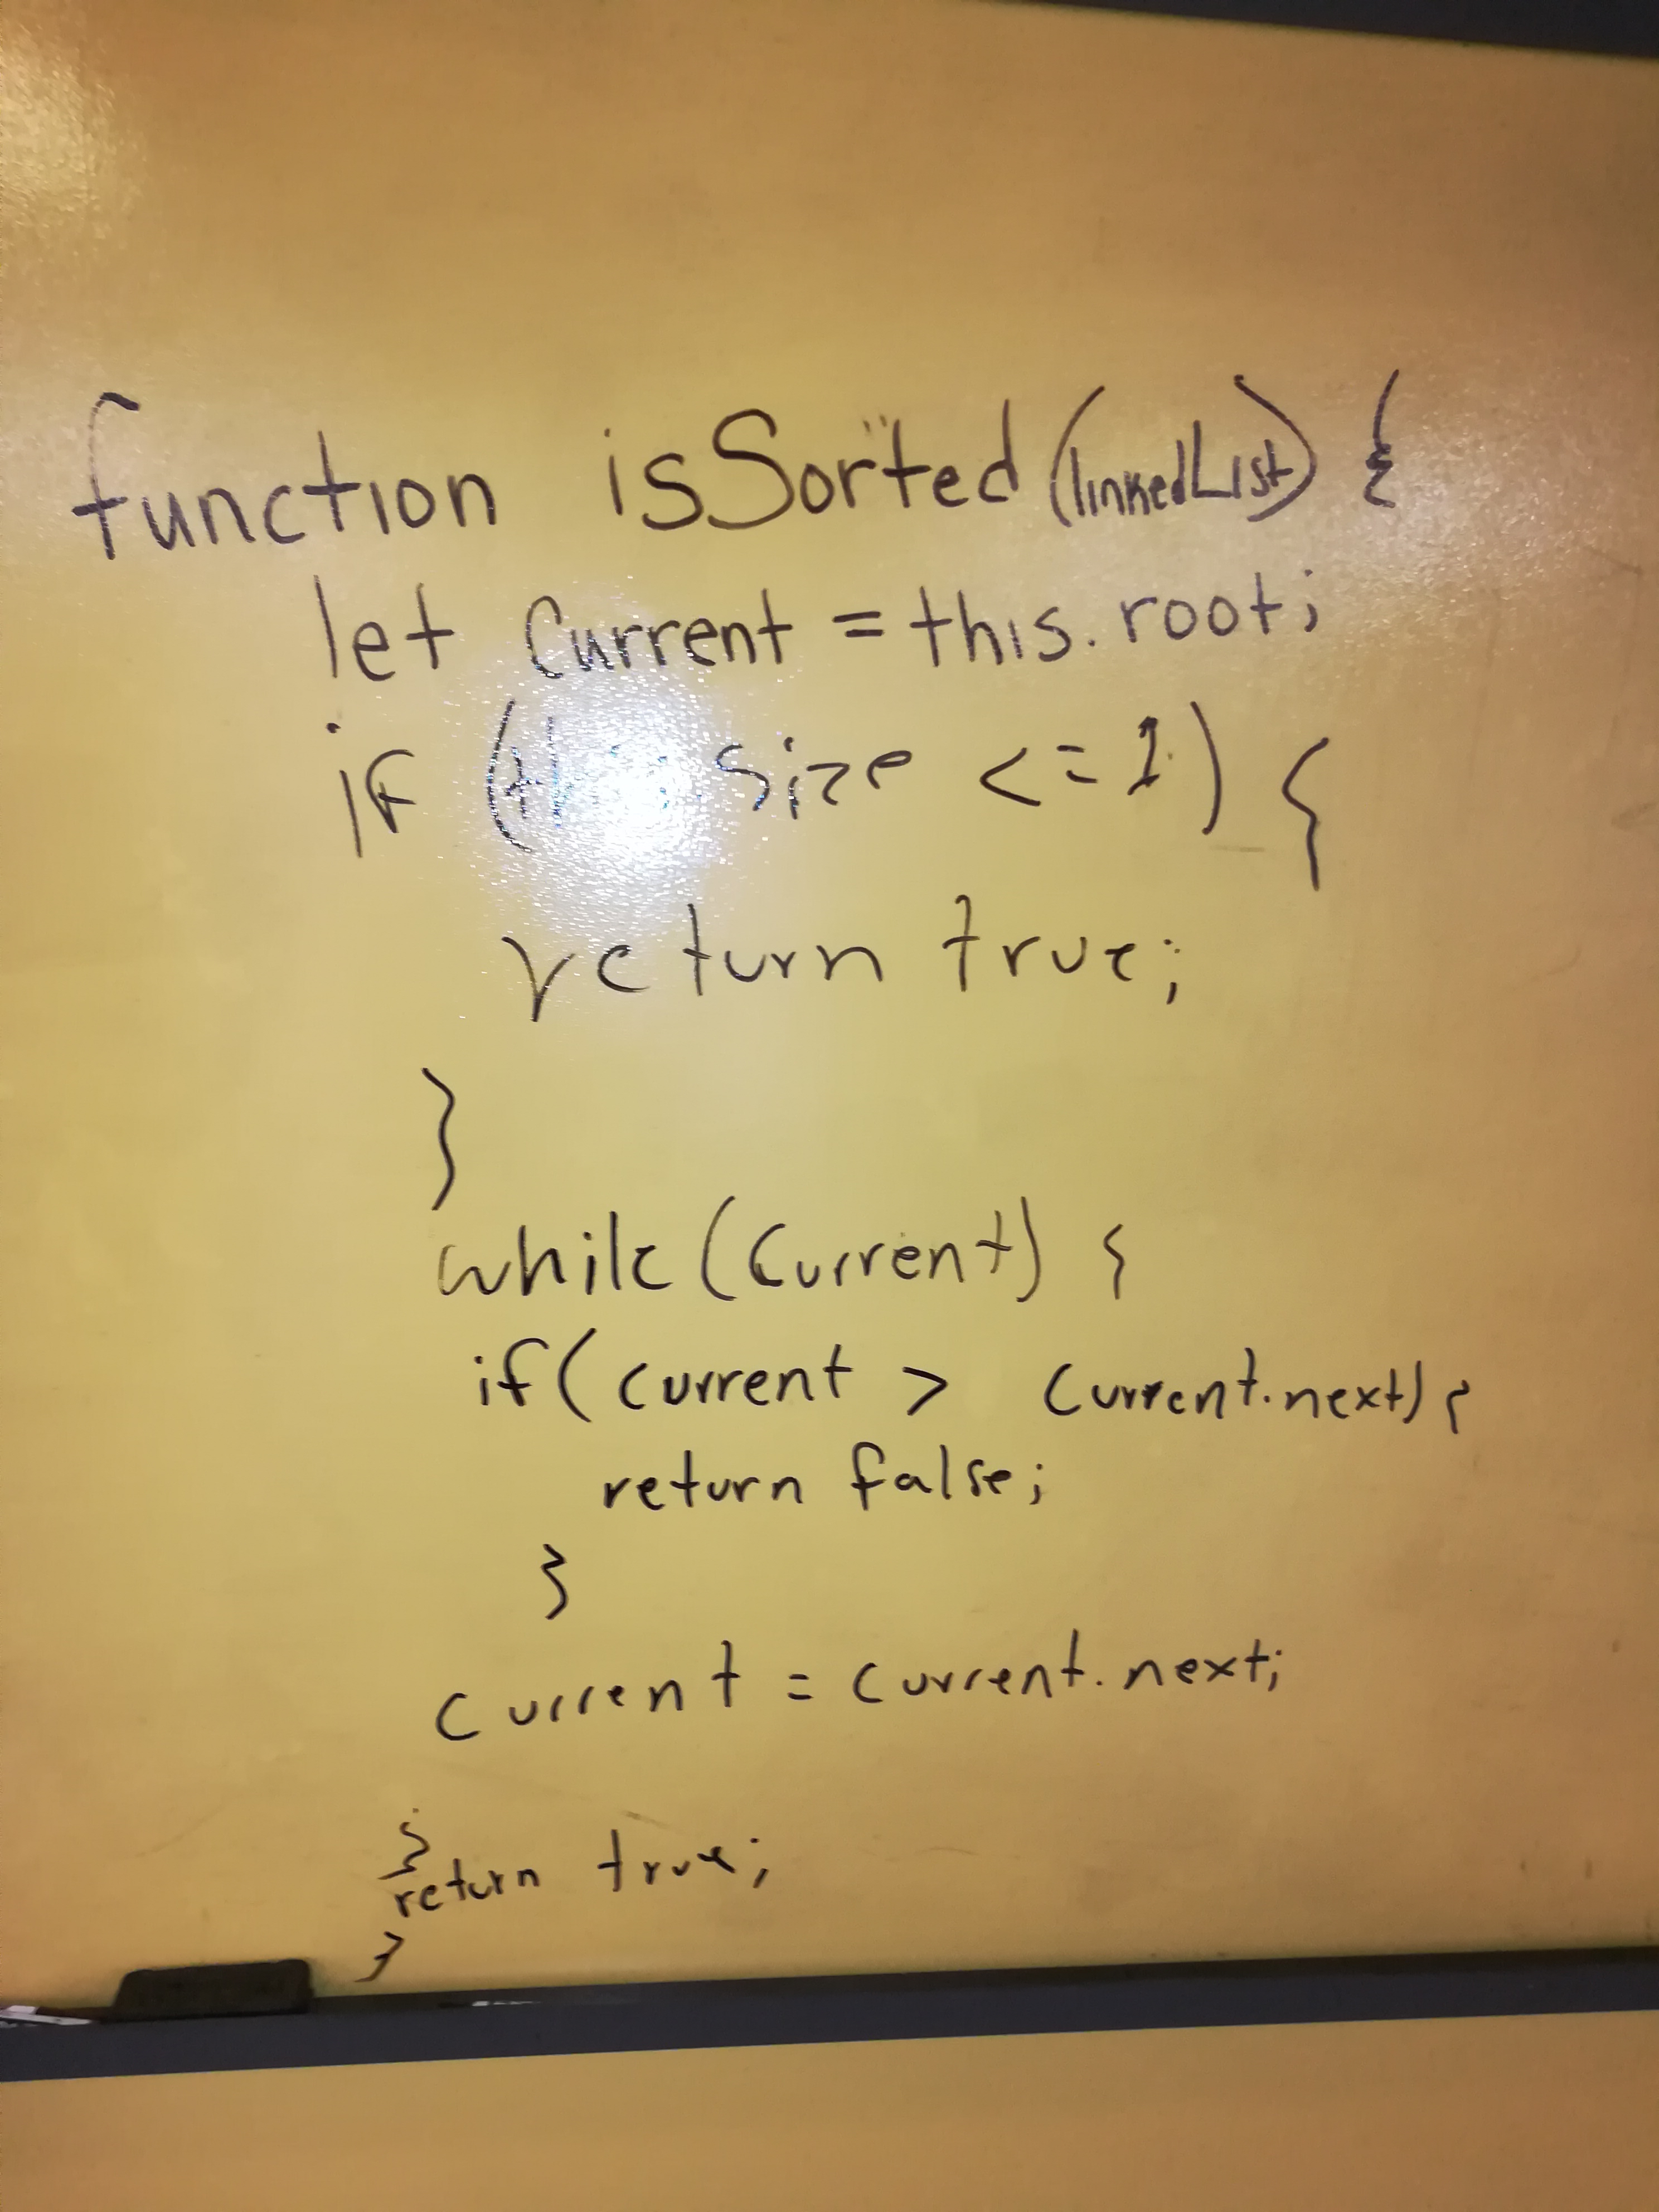 function isSorted (linkedList) {
let current = this.root;
if ( size <= 1) {
return true;
}
while (current) {
if (current > current.next) {
return false;
}
current = current.next;
}
return true;
}